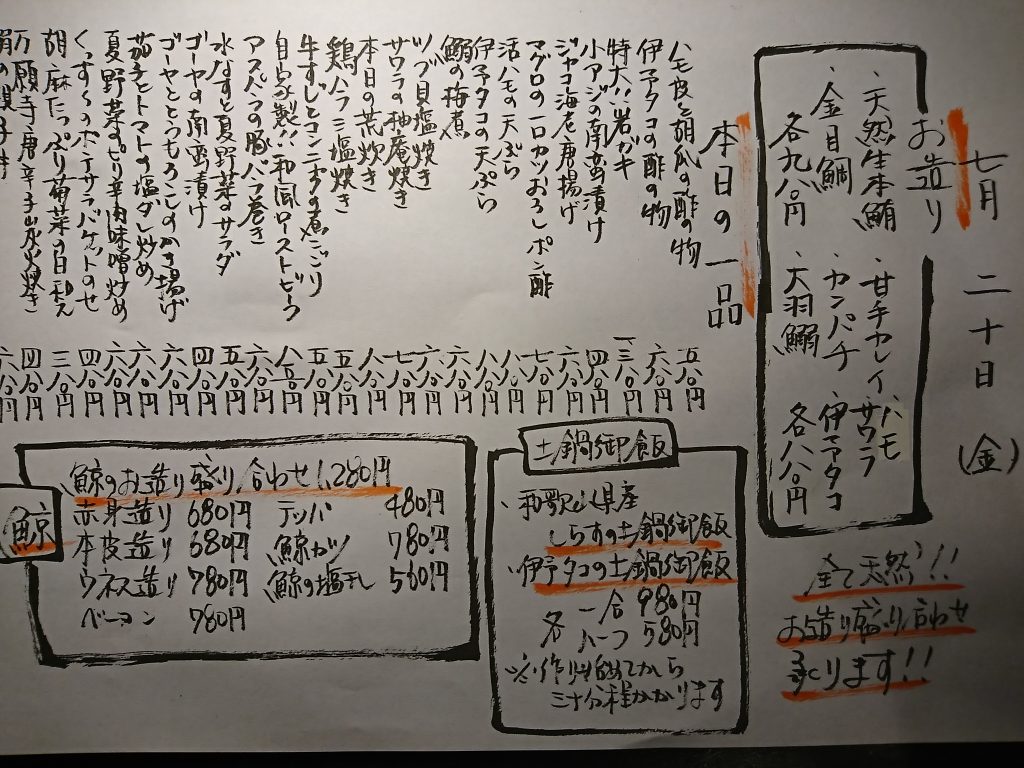 七月 二十日 (金)
お造り
・天然生本鮪
・金目鯛
各九八〇円
・甘手カレイ
・カンパチ
・大羽鰯
・ハモ
・サワラ
・伊予タコ
各八八〇円
全て天然!!
お造り盛り合わせ
承ります!!
本日の一品
ハモ皮と胡瓜の酢の物 五八〇円
伊予タコの酢の物 六八〇円
特大!!岩ガキ 一三八〇円
小アジの南蛮漬け 四八〇円
ジャコ海老の唐揚げ 六八〇円
マグロの一口カツおろしポン酢 七八〇円
活ハモの天ぷら 八八〇円
伊予タコの天ぷら 八八〇円
鰯の梅煮 六八〇円
ツブ貝塩焼き 六八〇円
サワラの柚庵焼き 七八〇円
本日の荒炊き 八八〇円
鶏ハラミ塩焼き 五八〇円
牛すじとコンニャクの煮こごり 五八〇円
自家製!!和風ローストビーフ 八八〇円
アスパラの豚バラ巻き 六八〇円
水なすと夏野菜のサラダ 五八〇円
ゴーヤの南蛮漬け 四八〇円
ゴーヤととうもろこしのかき揚げ 六八〇円
茄子とトマトの塩ダレ炒め 六八〇円
夏野菜のピリ辛肉味噌炒め 六八〇円
ポテサラバケットのせ 四八〇円
胡麻たっぷり 白和え 三八〇円
万願寺唐辛子炭火焼き 四八〇円
六八〇円
土鍋御飯
・和歌山県産
しらすの土鍋御飯
・伊予タコの土鍋御飯
各 一合 980円
ハーフ 580円
※作り始めてから
三十分程かかります
鯨
鯨のお造り盛り合わせ 1,280円
赤身造り 680円
本皮造り 680円
ウネス造り 780円
ベーコン 780円
テッパ 480円
鯨カツ 780円
鯨の塩干し 560円